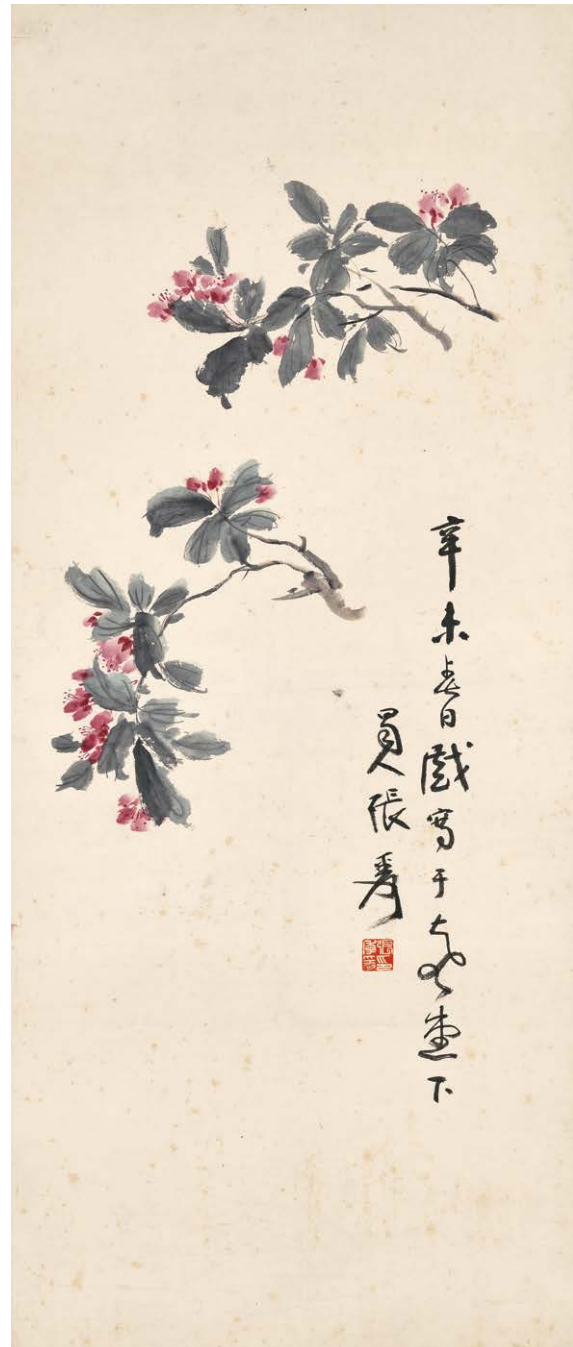 辛未春日戲寫于大風堂下
蜀人張爰